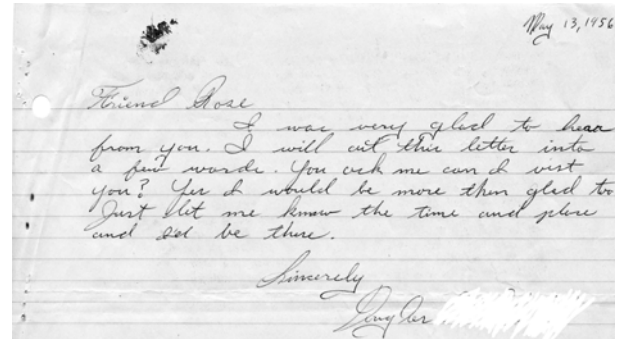 May 13, 1956
Friend Rose
I was very glad to hear
from you. I will cut this letter into
a few words. You ask me can I vist
you? Yes I would be more then glad to
Just let me know the time and place
and I'll be there.
Sincerely